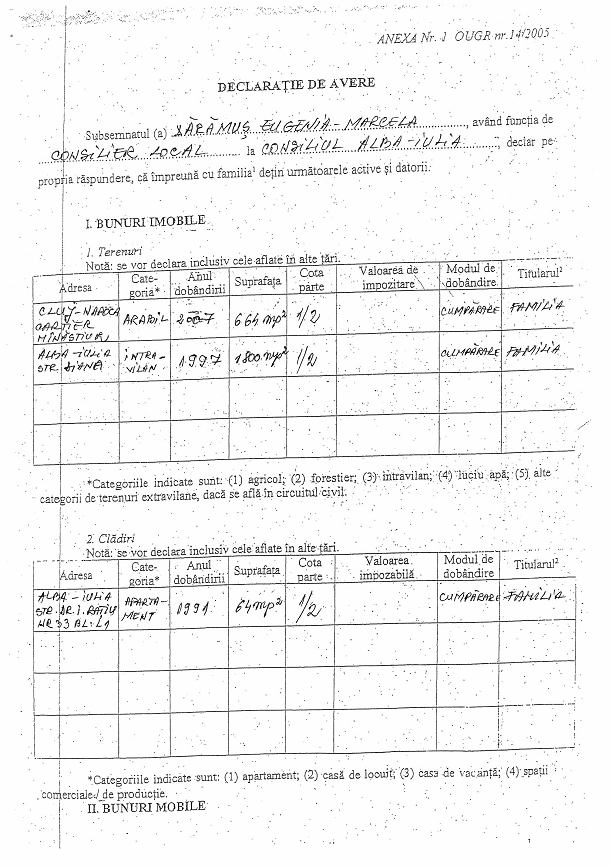 ANEXA Nr. 1 OUGR nr.14/2005
DECLARAŢIE DE AVERE
Subsemnatul (a) SĂRĂMUŞ EUGENIA-MARCELA, având funcţia de
CONSILIER LOCAL la CONSILIUL ALBA-IULIA, declar pe
propria răspundere, că împreună cu familia¹ deţin următoarele active şi datorii:
I. BUNURI IMOBILE
1. Terenuri
Notă: se vor declara inclusiv cele aflate în alte ţări.
Adresa Cate-goria* Anul dobândirii Suprafaţa Cota parte Valoarea de impozitare Modul de dobândire Titularul²
CLUJ-NAPOCA ARABIL 2007 664 mp² 1/2 CUMPĂRARE FAMILIA
CARTIER
ALBA-IULIA INTRA- 1997 1800 mp² 1/2 CUMPĂRARE FAMILIA
STR. VILAN
*Categoriile indicate sunt: (1) agricol; (2) forestier; (3) intravilan; (4) luciu apă; (5) alte
categorii de terenuri extravilane, dacă se află în circuitul civil.
2. Clădiri
Notă: se vor declara inclusiv cele aflate în alte ţări.
Adresa Cate-goria* Anul dobândirii Suprafaţa Cota parte Valoarea impozabilă Modul de dobândire Titularul²
ALBA-IULIA APARTA- 1991 64 mp² 1/2 CUMPĂRARE FAMILIA
STR. DR. I. RAŢIU MENT
NR 33 BL. L1
*Categoriile indicate sunt: (1) apartament; (2) casă de locuit; (3) casa de vacanţă; (4) spaţii
comerciale / de producţie.
II. BUNURI MOBILE
1